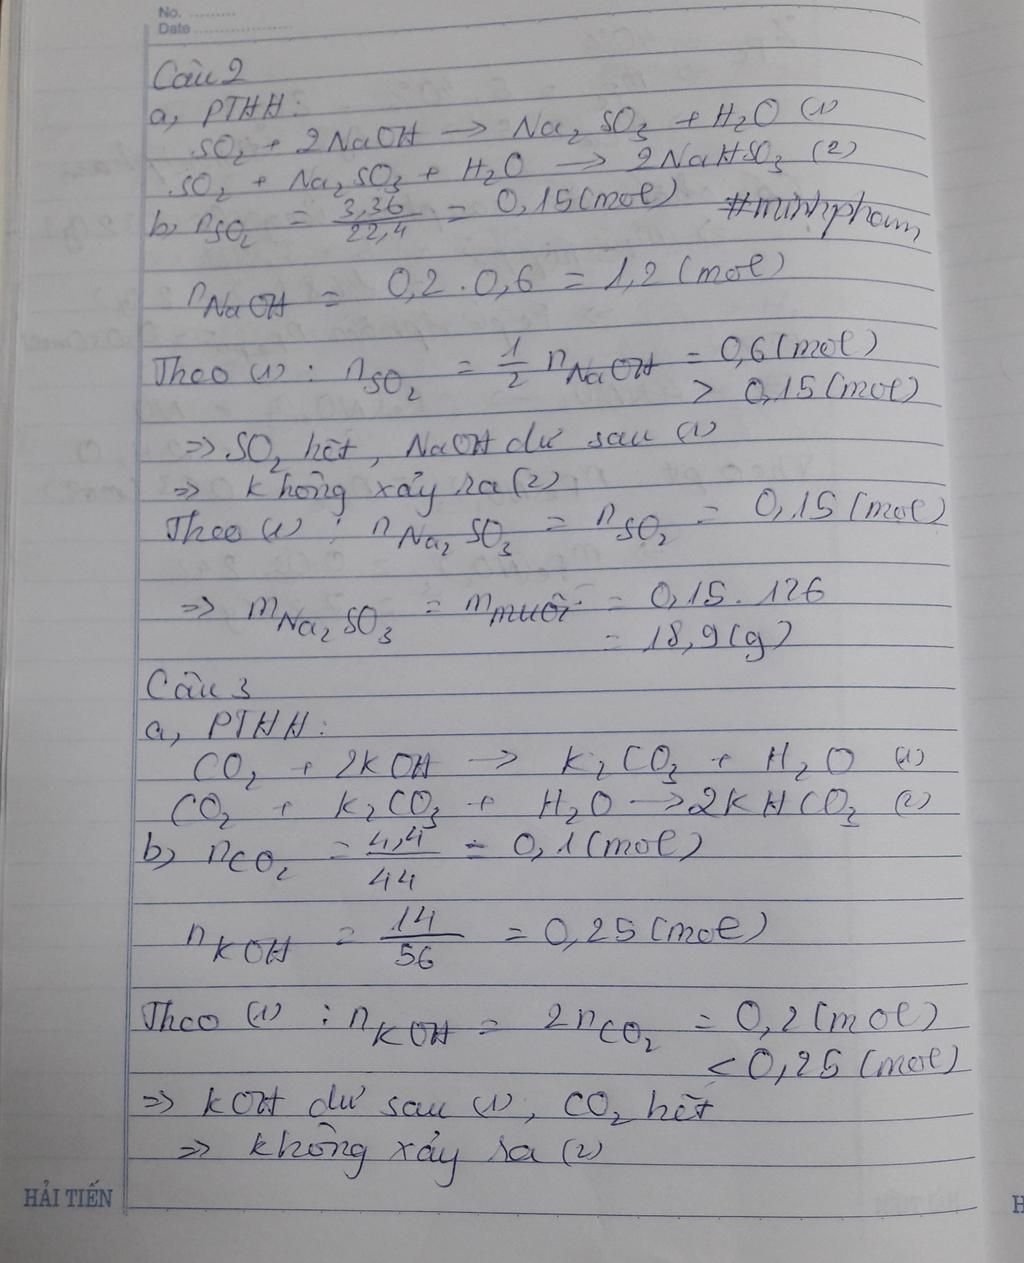 No. ..........
Date ....................
Câu 2
a, PTHH:
SO₂ + 2NaOH → Na₂SO₃ + H₂O (1)
SO₂ + Na₂SO₃ + H₂O → 2NaHSO₃ (2)
b, nSO₂ = 3,36/22,4 = 0,15 (mol) #minhpham
nNaOH = 0,2 . 0,6 = 1,2 (mol)
Theo (1) : nSO₂ = 1/2 nNaOH = 0,6 (mol)
> 0,15 (mol)
=> SO₂ hết, NaOH dư sau (1)
=> không xảy ra (2)
Theo (1) : nNa₂SO₃ = nSO₂ = 0,15 (mol)
=> mNa₂SO₃ = mmuối = 0,15 . 126
= 18,9 (g)
Câu 3
a, PTHH:
CO₂ + 2KOH → K₂CO₃ + H₂O (1)
CO₂ + K₂CO₃ + H₂O → 2KHCO₃ (2)
b, nCO₂ = 4,4/44 = 0,1 (mol)
nKOH = 14/56 = 0,25 (mol)
Theo (1) : nKOH = 2nCO₂ = 0,2 (mol)
< 0,25 (mol)
=> KOH dư sau (1), CO₂ hết
=> không xảy ra (2)
HẢI TIẾN
H